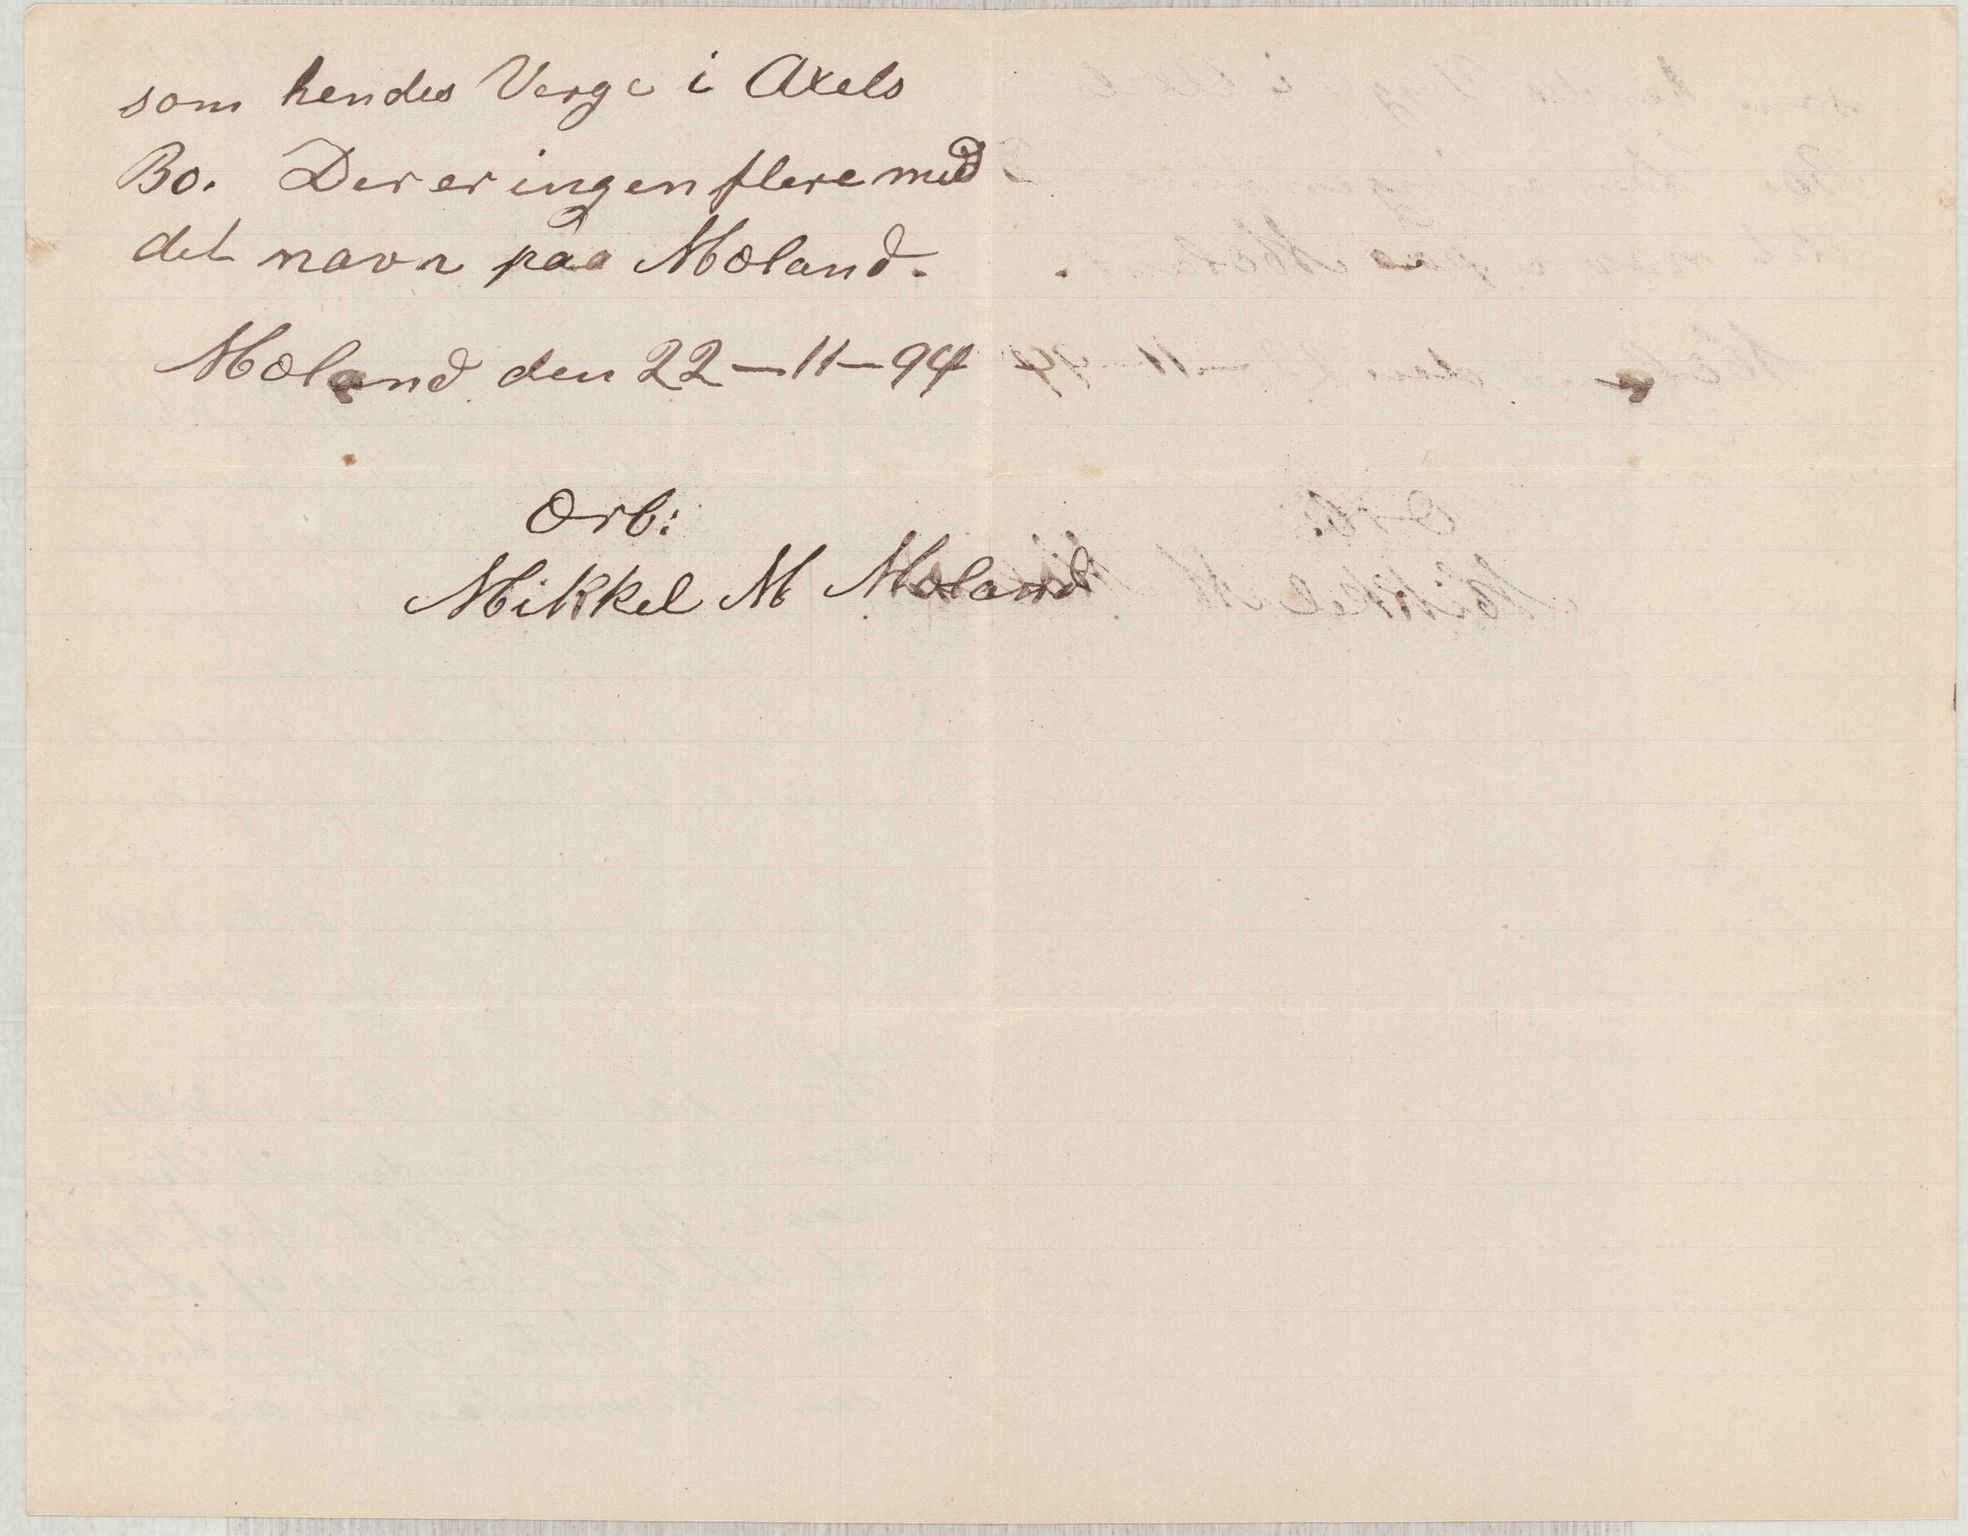 som hendes Verge i Axels
Bo. Der er ingen flere med
det navn paa Moland.
Moland den 22-11-94
Ærb:
Mikkel M Moland